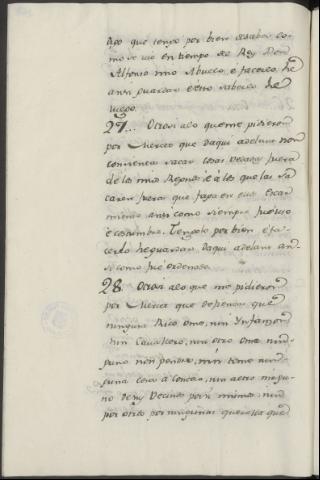 digo que tengo por bien de saber co-
mo se usó en tiempo del Rey Don
Alfonso mio Abuelo, è facerlo hè
ansi guardar, è esto saberlo hè
luego.
27... Otrosi alo que me pidieron
por Merced que daqui adelante non
consienta sacar cosas vedadas fuera
de los mios Regnos: è à los que las sa-
caren fuera que faga en ellos escar-
miento ansi como siempre fuè uso
è costumbre. Tengolo por bien è fa-
cerlo he guardar daqui adelante an-
si como fuè ordenado.
28. Otrosi alo que me pidieron
por Merced que defienda que
ninguna Rico Ome, nin Ynfanzon
nin Cavallero, nin otro Ome nin-
guno non poderoso, nin tome nin-
guna cosa à Concejo, nin à otro ningu-
no de sus Vecinos por si mismo nin
por otros por ningunas querellas que